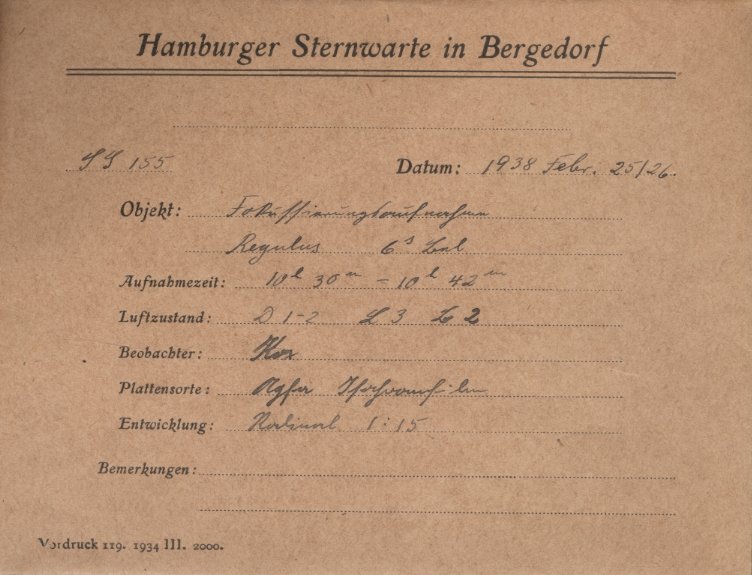 Hamburger Sternwarte in Bergedorf
SS 155 Datum: 1938 Febr. 25/26.
Objekt: Fokussierungsaufnahme
Regulus 6s
Aufnahmezeit: 10h 30m – 10h 42m
Luftzustand: D 1-2 L 3 2
Beobachter:
Plattensorte: Agfa Isochromfilm
Entwicklung: Rodinal 1:15
Bemerkungen:
Vordruck 119. 1934 III. 2000.